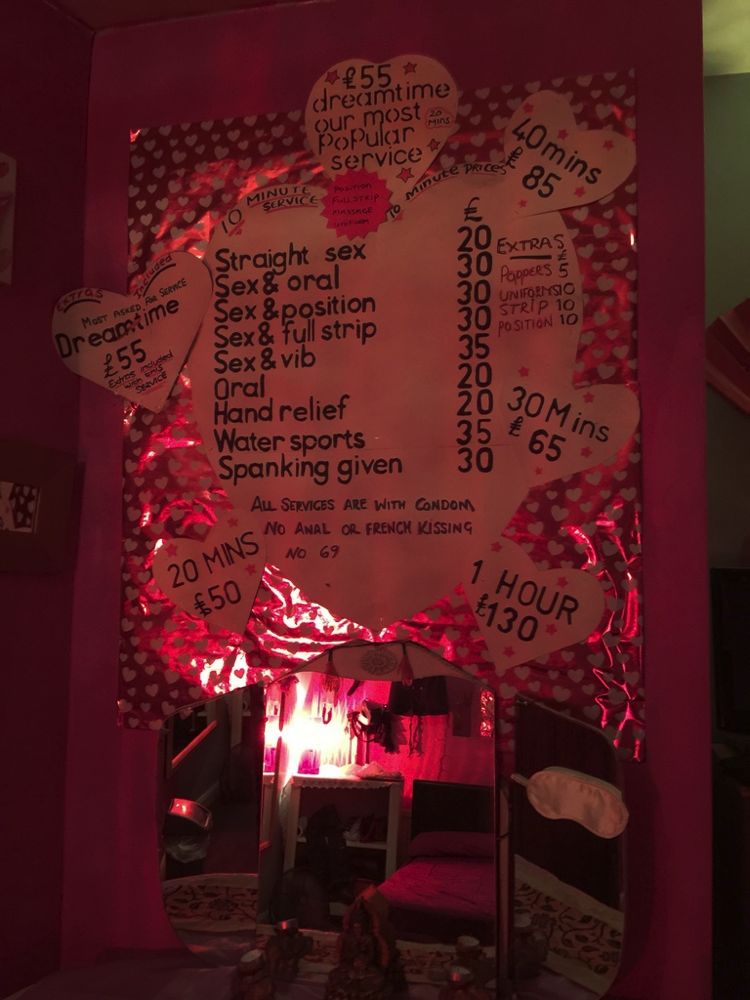 £55
dreamtime
our most
popular
service
20 mins
10 MINUTE
SERVICE
POSITION
FULL STRIP
MASSAGE
UNIFORM
10 MINUTE PRICES
40 mins
£85
£
Straight sex 20
Sex & oral 30
Sex & position 30
Sex & full strip 30
Sex & vib 35
Oral 20
Hand relief 20
Water sports 35
Spanking given 30
EXTRAS £
POPPERS 5
UNIFORMS 10
STRIP 10
POSITION 10
EXTRAS Included
MOST ASKED FOR SERVICE
Dreamtime
£55
Extras included
with this
SERVICE
30 Mins
£65
ALL SERVICES ARE WITH CONDOM
NO ANAL OR FRENCH KISSING
NO 69
20 MINS
£50
1 HOUR
£130